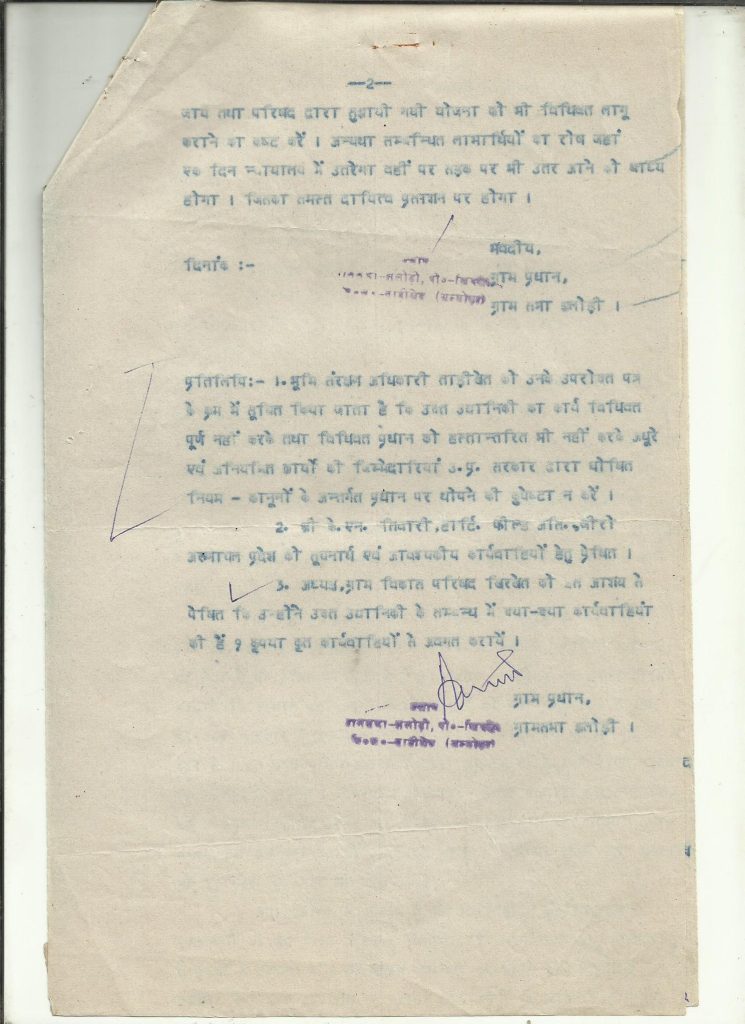 --2--
जाय तथा परिषद द्वारा सुझायी गयी योजना को भी विधिवत लागू
कराने का कष्ट करें । अन्यथा सम्बन्धित लाभार्थियों का रोष जहां
एक दिन न्यायालय में उतरेगा वहीं पर सड़क पर भी उतर आने को बाध्य
होगा । जिसका समस्त दायित्व प्रशासन पर होगा ।
भवदीय,
दिनांक :-
ग्राम प्रधान,
ग्राम सभा
प्रतिलिपि:- 1. भूमि संरक्षण अधिकारी ताड़ीखेत को उनके उपरोक्त पत्र
के क्रम में सूचित किया जाता है कि उक्त उद्यानिकी का कार्य विधिवत
पूर्ण नहीं करके तथा विधिवत प्रधान को हस्तान्तरित भी नहीं करके अधूरे
एवं अनियमित कार्यों की जिम्मेदारियां उ.प्र. सरकार द्वारा घोषित
नियम - कानूनों के अन्तर्गत प्रधान पर थोपने की कुचेष्टा न करें ।
2. श्री के.एन. तिवारी, हार्टि. फील्ड असि.,
प्रदेश को सूचनार्थ एवं आवश्यकीय कार्यवाहियों हेतु प्रेषित ।
3. अध्यक्ष, ग्राम विकास परिषद को इस आशय से
प्रेषित कि उन्होंने उक्त उद्यानिकी के सम्बन्ध में क्या-क्या कार्यवाहियां
की हैं ? कृपया कृत कार्यवाहियों से अवगत करायें ।
ग्राम प्रधान,
ग्रामसभा